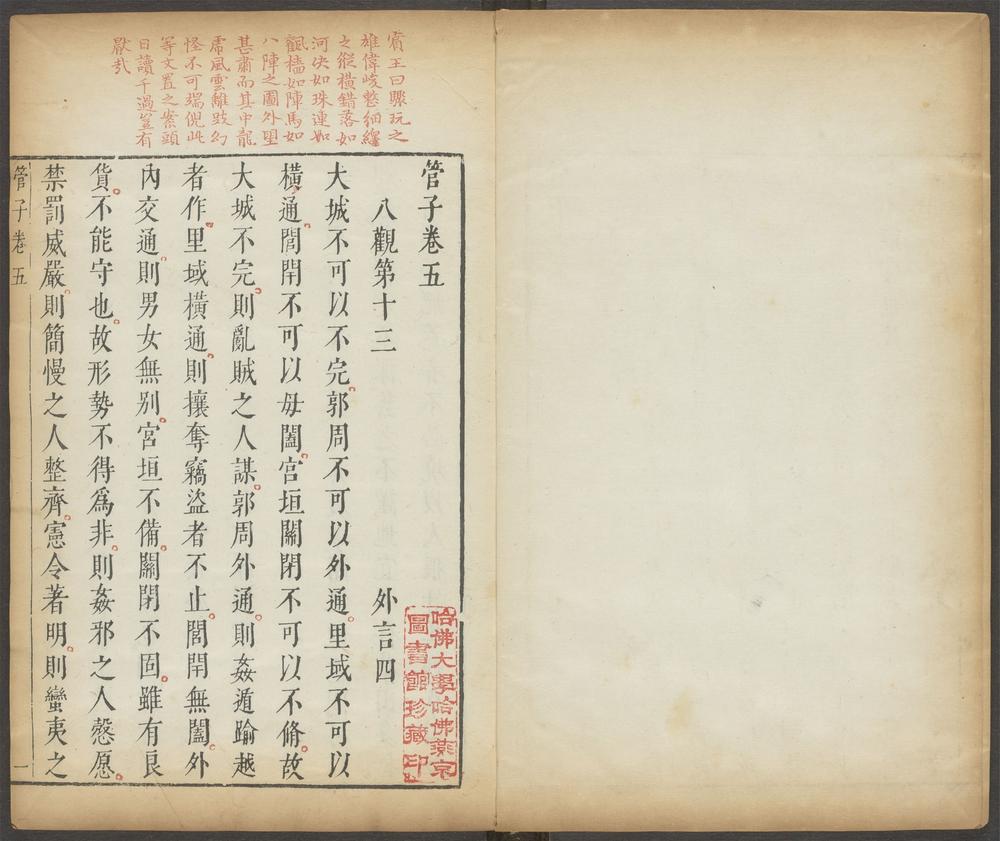 賓王曰驟玩之
雄偉峻整細繹
之縱橫錯落如
河決如珠連如
颿檣如陣馬如
八陣之圖外
甚肅而其中龍
虎風雲離跂幻
怪不可端倪此
等文置之案頭
日讀千過豈有
厭哉
管子卷五
八觀第十三 外言四
大城不可以不完。郭周不可以外通。里域不可以
橫通。閭閈不可以毋闔。宮垣關閉不可以不脩。故
大城不完。則亂賊之人謀。郭周外通。則姦遁踰越
者作。里域橫通。則攘奪竊盜者不止。閭閈無闔。外
內交通。則男女無别。宮垣不備。關閉不固。雖有良
貨。不能守也。故形勢不得爲非。則姦邪之人慤愿。
禁罰威嚴。則簡慢之人整齊。憲令著明。則蠻夷之
管子卷五 一
哈佛大學哈佛燕京
圖書館珍藏印